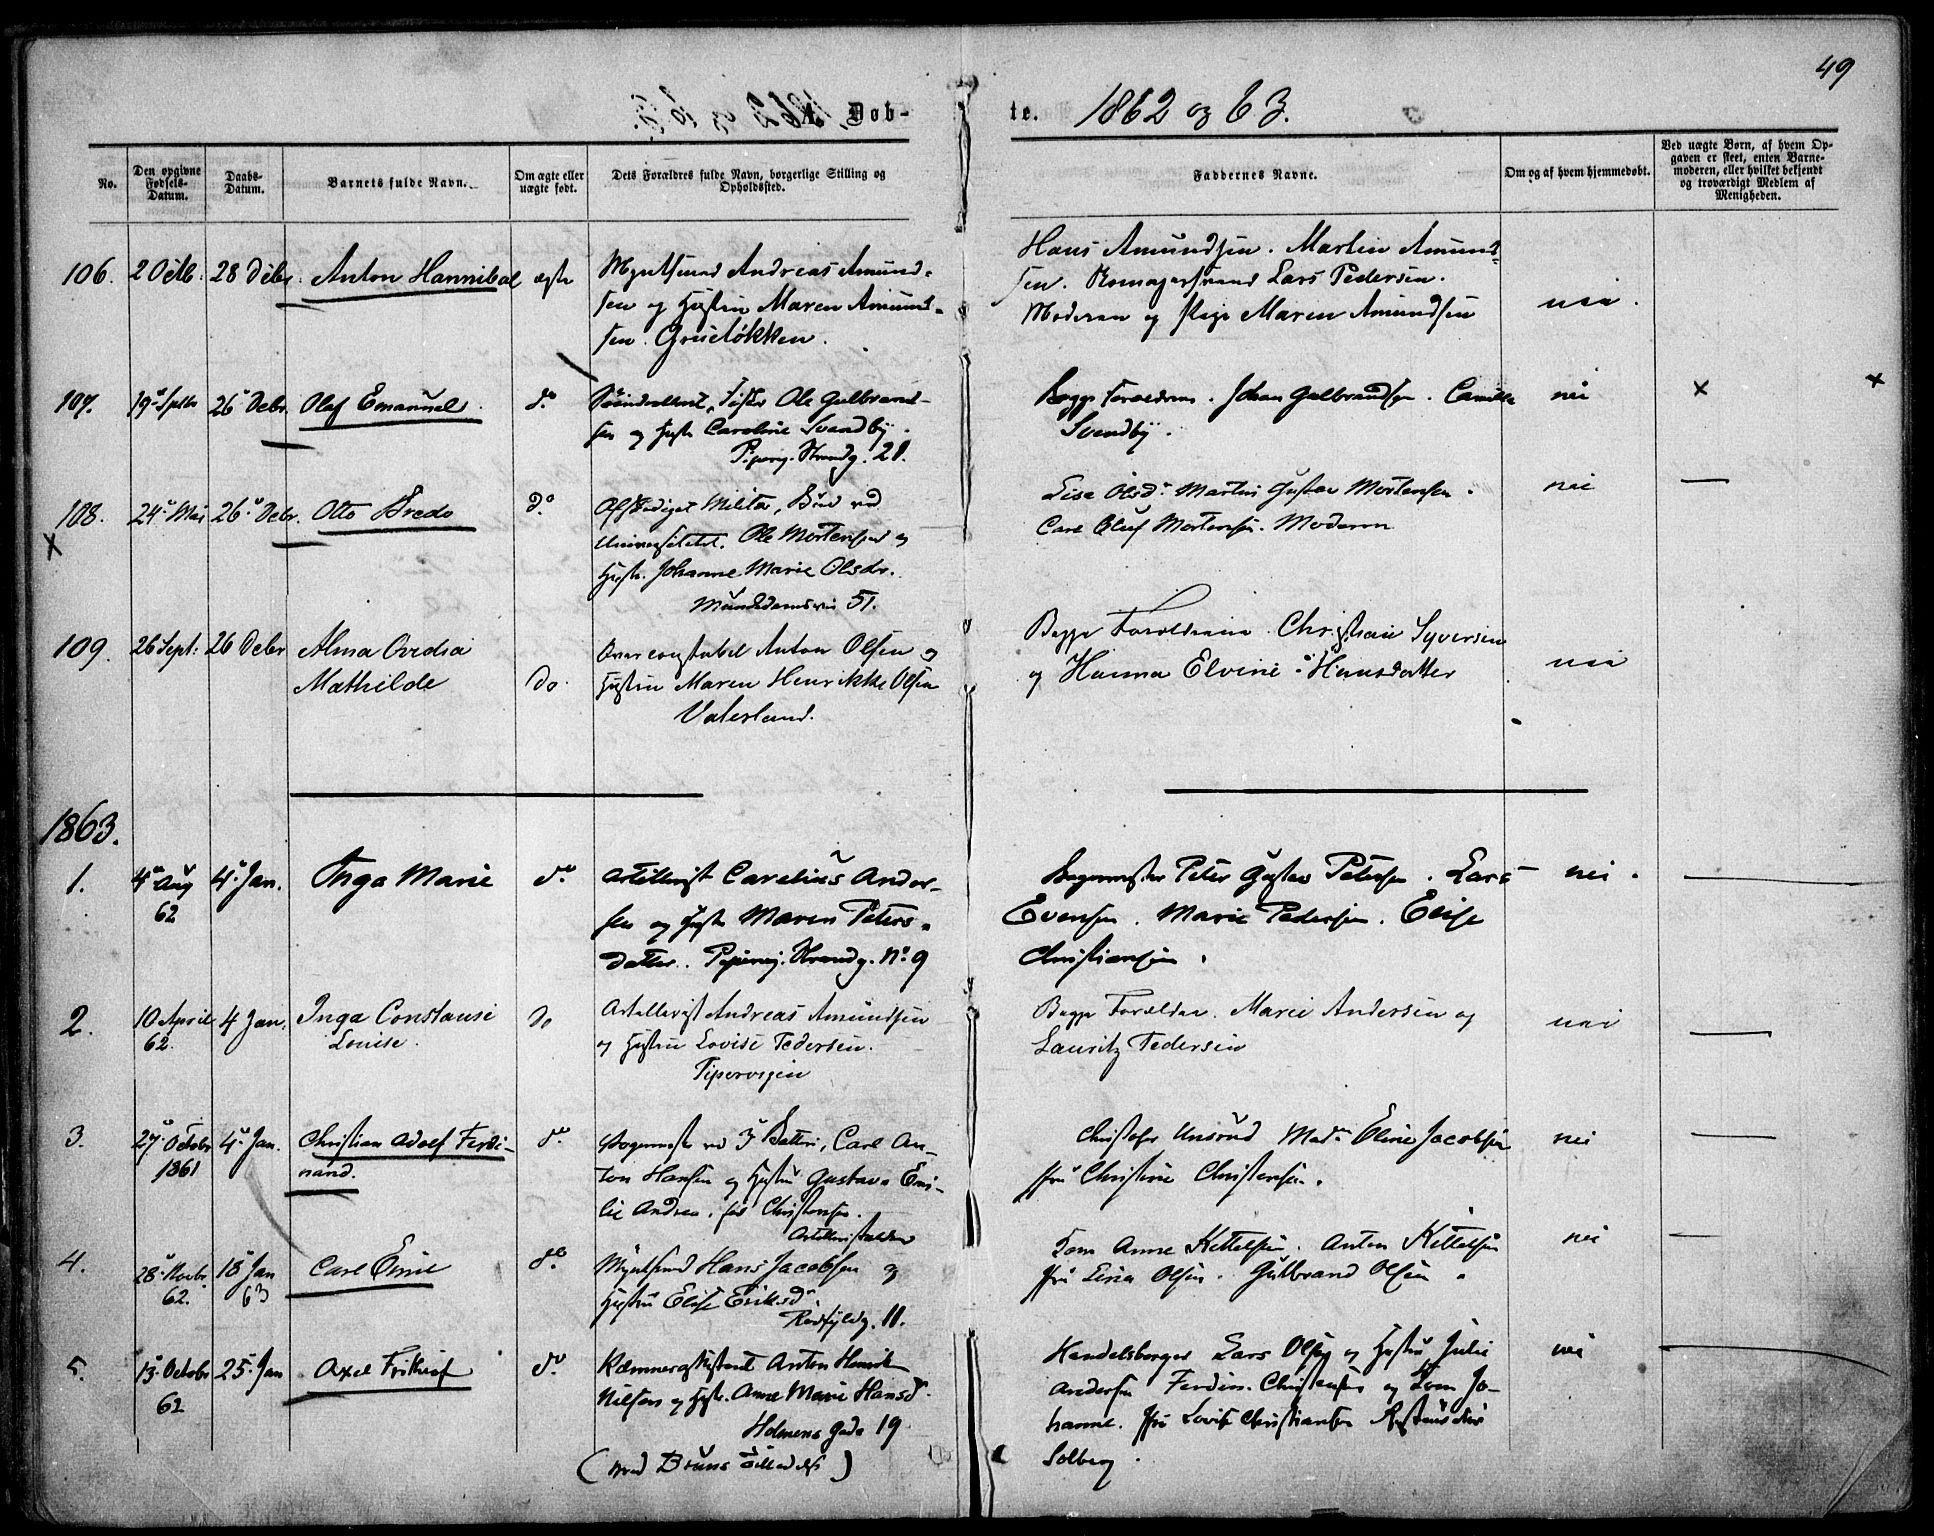 49
Døb-
te. 1862 og 63.
No.
Den opgivne Fødsels-Datum.
Daabs-Datum.
Barnets fulde Navn.
Om ægte eller uægte født.
Dets Forældres fulde Navn, borgerlige Stilling og Opholdssted.
Faddernes Navne.
Om og af hvem hjemmedøbt.
Ved uægte Børn, af hvem Opgaven er skeet, enten Barnemoderen, eller hvilket bekjendt og troværdigt Medlem af Menigheden.
106. 2 Octb. 28 Debr. Anton Hannibal ægte
Andreas Amund-
sen og Hustru Maren Amund-
sen.
Hans Amundsen. Martin Amund-
sen. Lars Pedersen.
Moderen og Pige Maren Amundsen
nei.
107. 19 Septbr 26 Debr. Olaf Emanuel do
Ole Gulbrand-
sen og Hustr Caroline Svendby.
Piperv. Strandg. 21.
Begge Forældrene. Johan Gulbrandsen. Camilla
Svendby.
nei x x
108. 24 Mai 26 Debr. Otto Bredo do
x
Afskediget Militær, Bud ved
Universitetet. Ole Mortensen og
Hustr. Johanne Marie Olsdr.
Munkedamsvei 51.
Lise Olsdr Martin Gustav Mortensen.
Carl Oluf Mortensen. Moderen
nei —
109. 26 Sept. 26 Debr Alma Ovedia
Mathilde do.
Overconstabel Anton Olsen og
Hustru Maren Henrikke Olsen
Vaterland.
Begge Forældrene. Christian Syversen
og Hanna Elvine Hansdatter
nei
1863.
1. 4 Aug 62 4 Jan. Inga Marie do
Artillerist Carelius Ander-
sen og Hustr Maren Peters-
datter. Piperv. Strandg. No 9
Peter Gustav Petersen. Lars
Evensen. Marie Pedersen. Elise
Christiansen.
nei. —
2. 10 April 62. 4 Jan. Inga Constanse
Louise. do
Artillerist Andreas Amundsen
og Hustru Lovise Pedersen.
Pipervigen
Begge Forældre. Marie Andersen og
Lauritz Pedersen
nei —
3. 27 Octobr 1861 4 Jan. Christian Adolf Ferdi-
nand. do
ved 3 Batteri, Carl An-
ton Hansen og Hustru Gustava Emi-
lie Andrea, fød Christensen.
Christofer Unsrud Mad. Oline Jacobsen
Fru Christine Christensen.
nei —
4. 28 Novbr. 62. 18 Jan 63 Carl Emil do
Hans Jacobsen og
Hustru Elise Eriksd.
Raadhusg. 11.
Anne Kettelsen. Anton Kittelsen
Fru Lina Olsen. Gulbrand Olsen.
nei —
5. 13 Octobr 62 25 Jan Axel Frithiof do
Anton Henrik
Nilsen og Hustr. Anne Marie Hansd.
Holmens Gade 19
Handelsborger Lars Olsen og Hustru Julie
Andersen Ferdin. Christensen og Jo-
hanne. Fru Lovise Christiansen
Solberg.
nei —